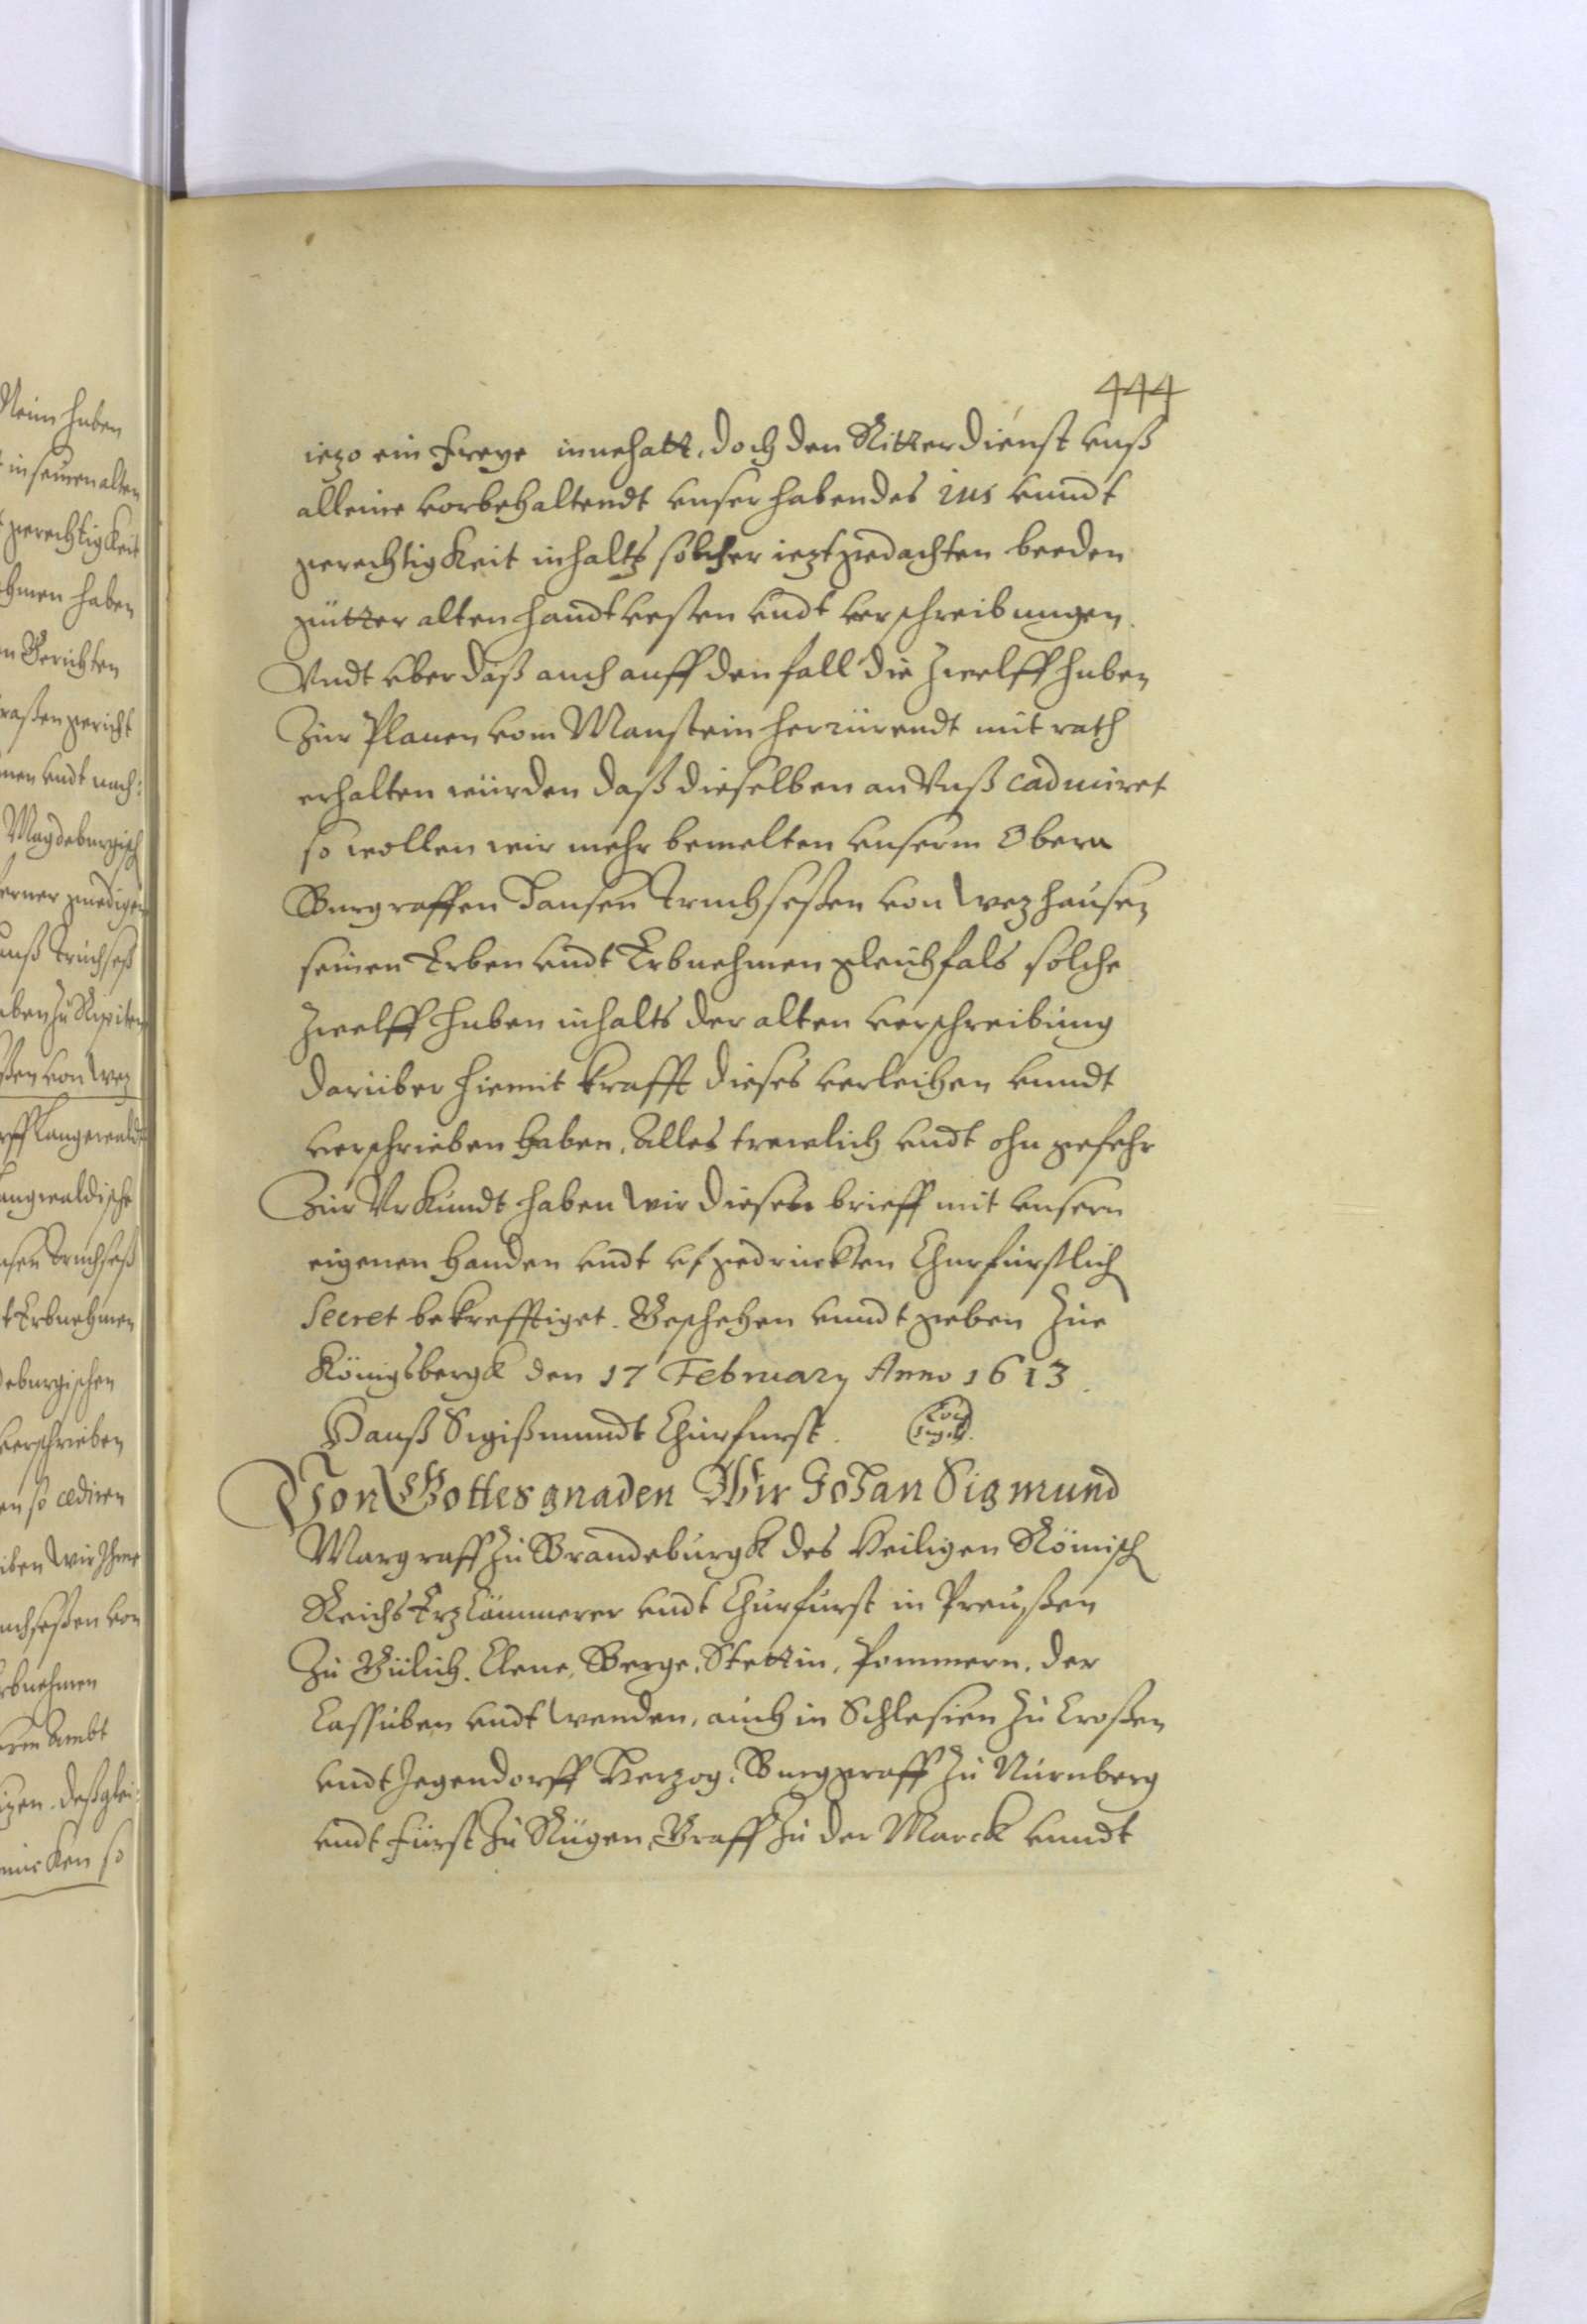 444
iezo ein Freye innehatt, doch den Ritterdienst vnß
alleine vorbehaltendt vnser habendes ius vnndt
gerechtigkeit inhaltz solcher ieztgedachten beeden
gütter alten handtvesten vndt verschreibungen.
Vndt vber daß auch auff den fall die Zwelff huben
Zur Plauen vom Manstein herrürendt mit rath
erhalten würden daß dieselben an Vnß caduciret
so wollen wir mehr bemelten vnserm Obern
Burgraffen Hansen Truchseßen von Wezhausen
seinen Erben vndt Erbnehmen gleichfals solche
Zwelff huben inhalts der alten verschreibung
darüber hiemit krafft dieses verleihen vnndt
verschrieben haben, Alles trewlich vndt ohn gefehr
Zur Vrkundt haben Wir diesen brieff mit vnsern
eigenen handen vndt vfgedruckten Churfürstlich
Secret bekrefftiget. Geschehen vnndt geben Zue
Königsbergk den 17 February Anno 1613.
Hanß Sigißmundt Churfurst. Loc Sigil.
Von Gottes gnaden Wir Johan Sigmund
Margraff Zu Brandeburgk des Heiligen Römisch
Reichs Erzcämmerer vndt Churfurst in Preußen
Zu Gülich, Cleue, Berge, Stettin, Pommern, der
Cassuben vndt Wenden, auch in Schlesien Zu Croßen
vndt Jegendorff Herzog, Burggraff Zu Nürnberg
vndt Fürst Zu Rügen, Graff Zu der Marck vnndt
huben
in seinen alten
gerechtigkeit
hmen haben
n Gerichten
raßen gericht
men vndt nach:
Magdeburgisch
erner gnedigen
nß Truchseß
ßen von Wez
ff Langewaldt
angwaldische
nsen Truchseß
t Erbnehmen
deburgischen
verschrieben
en so cediren
iben Wir Ihme
uchseßen von
rbnehmen
rm Ambt
deßglei:
so